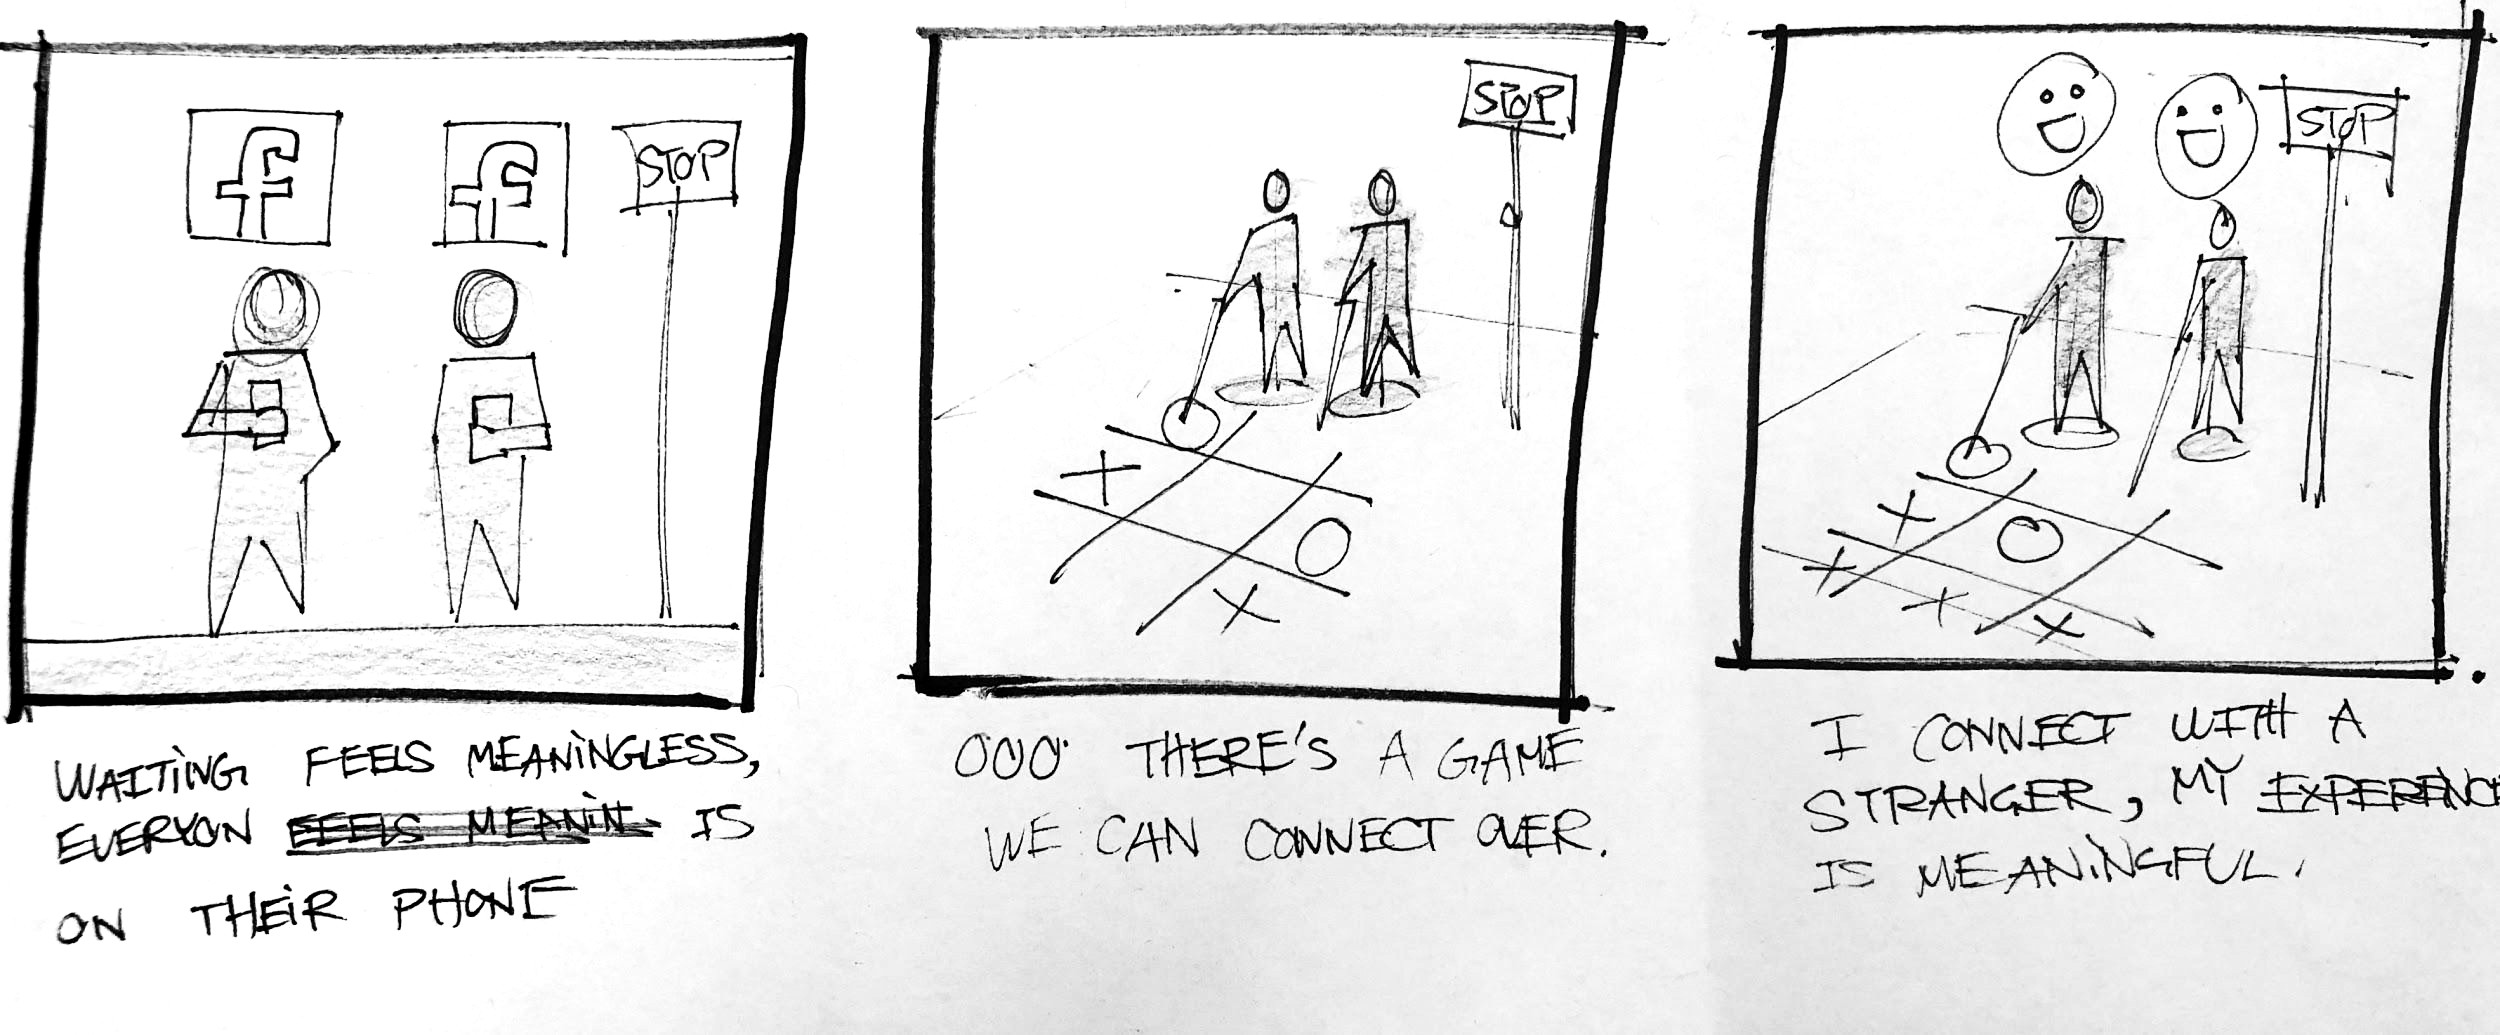 f
f
STOP
WAITING FEELS MEANINGLESS,
EVERYON FEELS MEANIN IS
ON THEIR PHONE
STOP
X
O
X
OOO THERE'S A GAME
WE CAN CONNECT OVER.
STOP
X
O
X
X
X
I CONNECT WITH A
STRANGER, MY EXPERIENC
IS MEANINGFUL.